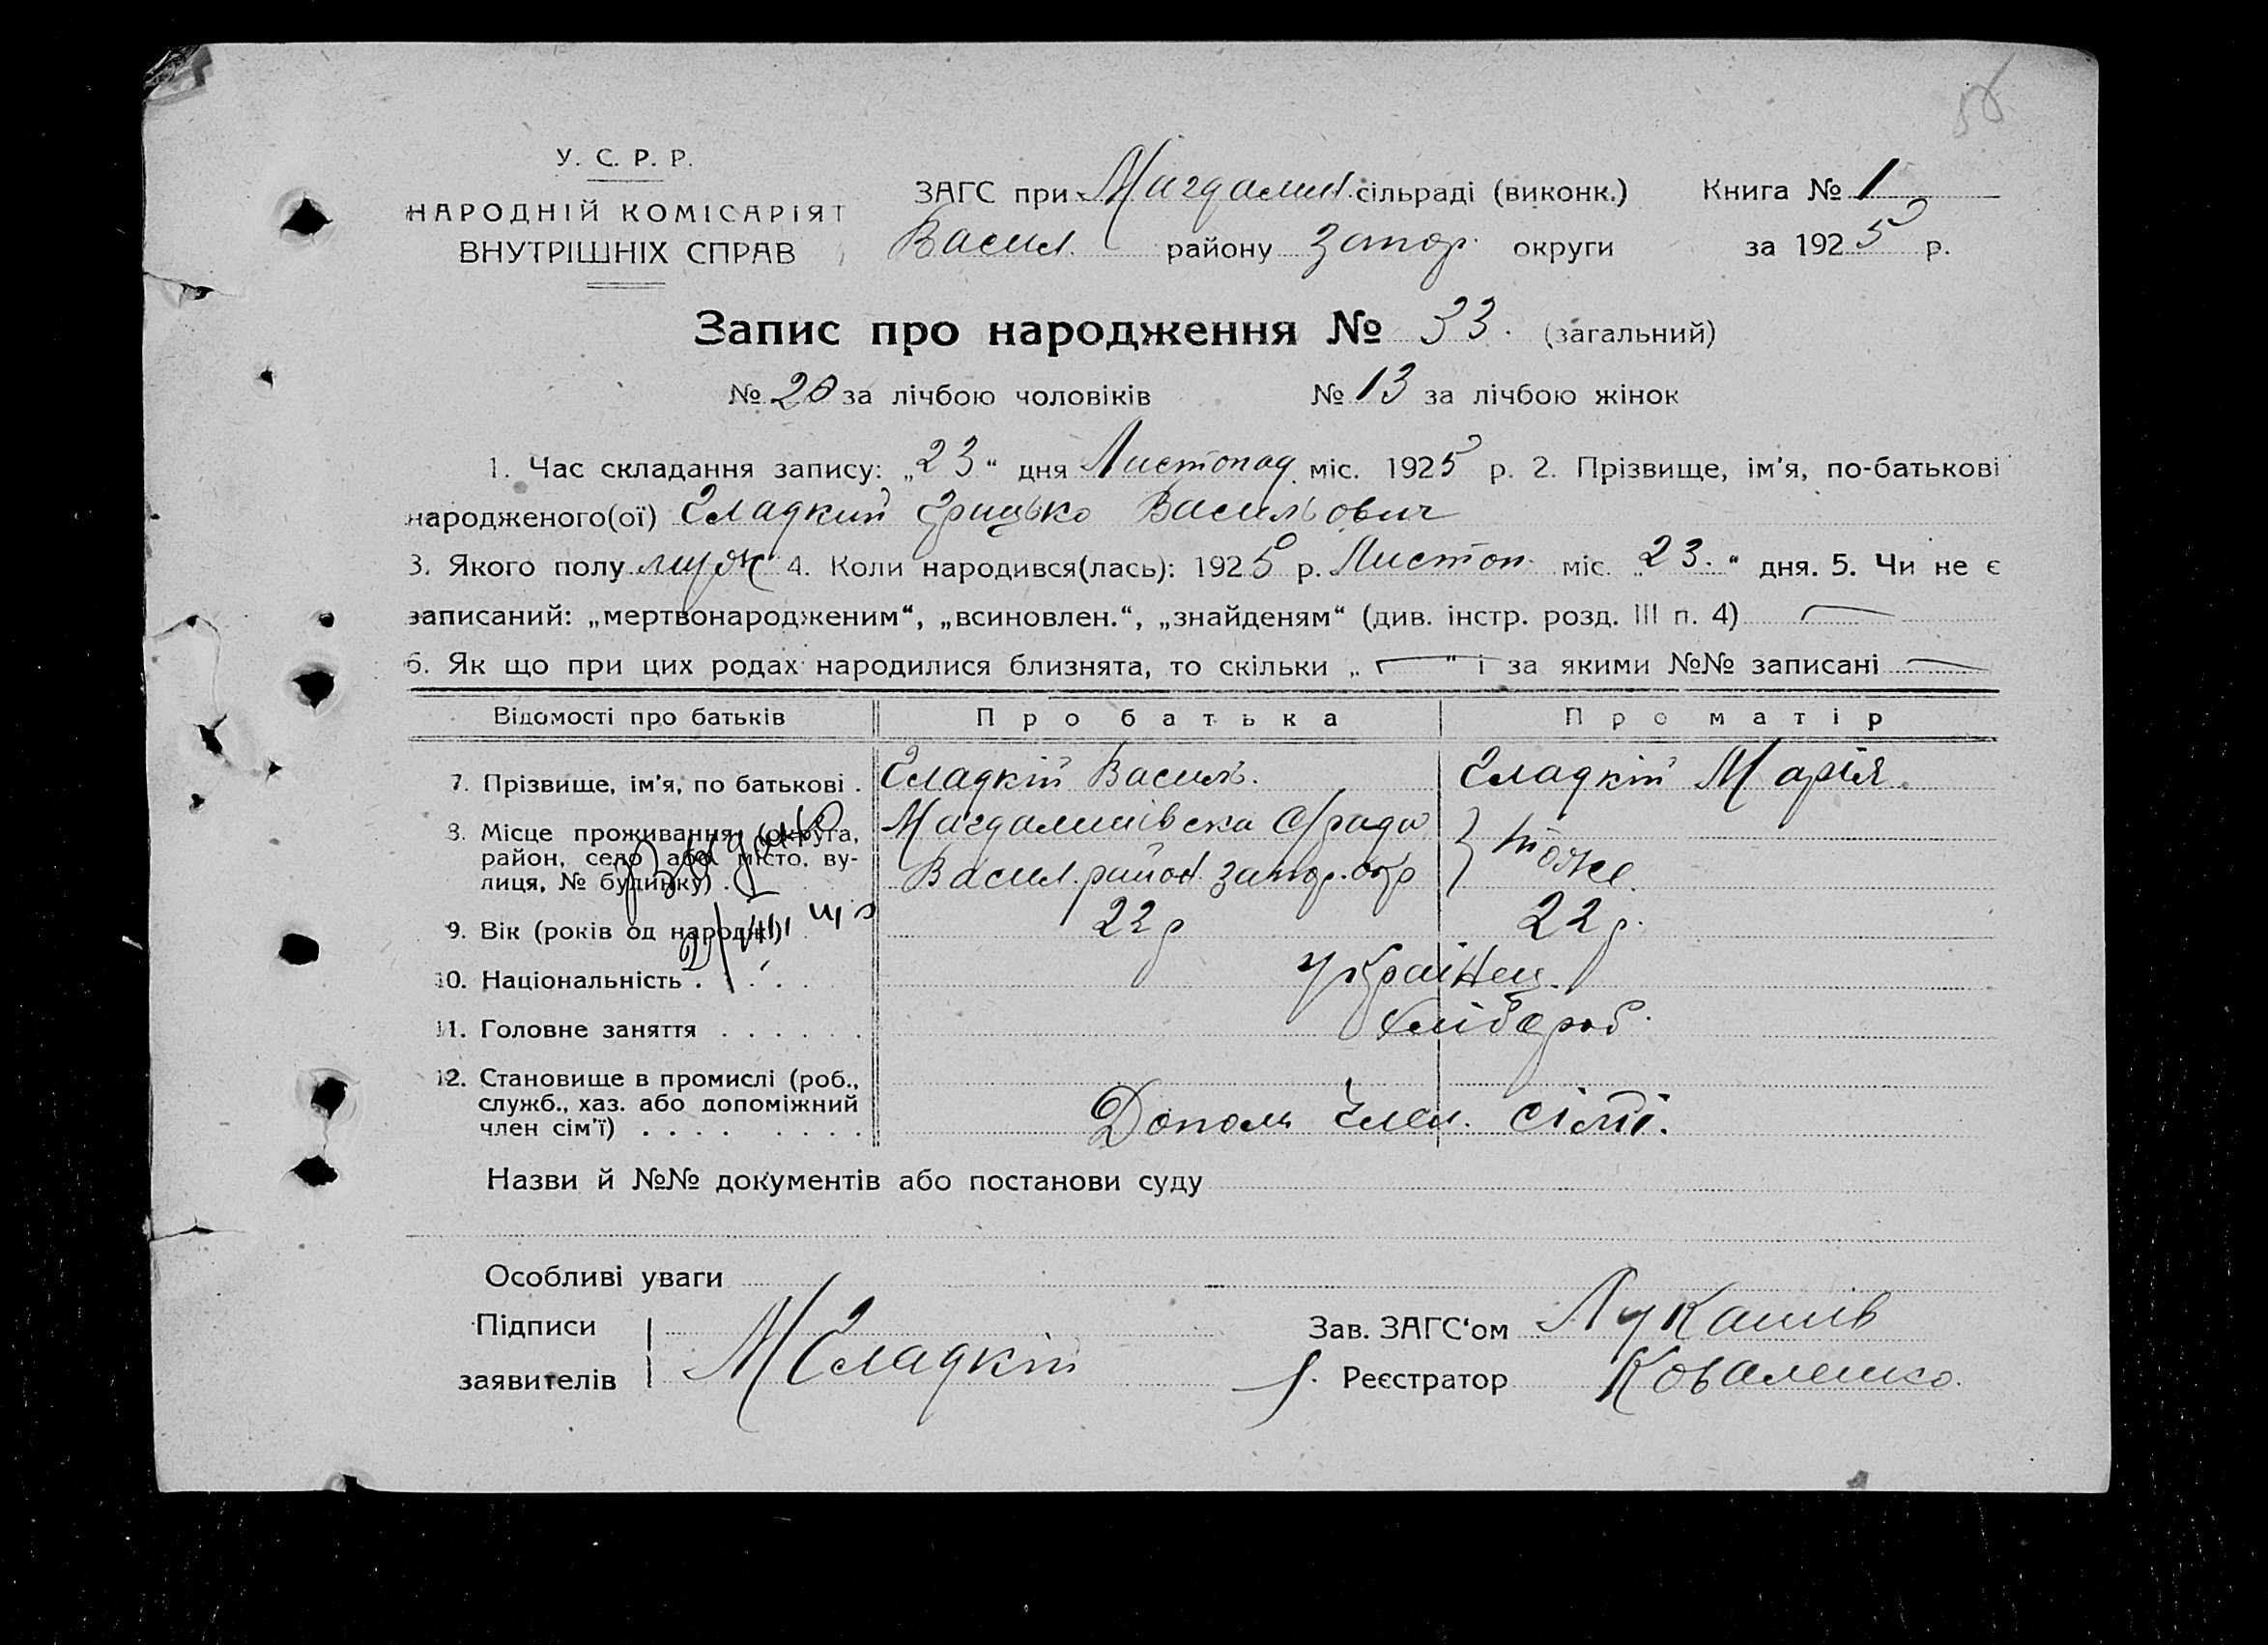 56
У. С. Р. Р.
НАРОДНІЙ КОМІСАРІЯТ
ВНУТРІШНІХ СПРАВ
ЗАГС при Магдалин. сільраді (виконк.) Книга № 1
Васил. району Запор. округи за 1925 р.
Запис про народження № 33. (загальний)
№ 20 за лічбою чоловіків № 13 за лічбою жінок
1. Час складання запису: „23“ дня Листопад міс. 1925 р. 2. Прізвище, ім'я, по-батькові
народженого(ої) Гладкий Грицько Васильович
3. Якого полу муж 4. Коли народився(лась): 1925 р. Листоп. міс. „23.“ дня. 5. Чи не є
записаний: „мертвонародженим“, „всиновлен.“, „знайденям“ (див. інстр. розд. III п. 4)
6. Як що при цих родах народилися близнята, то скільки „ — “ і за якими №№ записані —
Відомості про батьків Про батька Про матір
7. Прізвище, ім'я, по батькові . Гладкій Василь. Гладкій Марія.
8. Місце проживання (округа, Магдалинівска С/рада
район, село або місто, ву- тоже.
лиця, № будинку) . Васил. район Запор. окр
9. Вік (років од народж.) 22 р 22 р.
10. Національність . . . . Українец.
11. Головне заняття . . . . . . Хлібороб.
12. Становище в промислі (роб.,
служб., хаз. або допоміжний
член сім'ї) . . . . . . . . Допом член. сімі.
Назви й №№ документів або постанови суду
Особливі уваги
Підписи
заявителів М Гладкій
Зав. ЗАГС‘ом Лукашів
Реєстратор Коваленко.